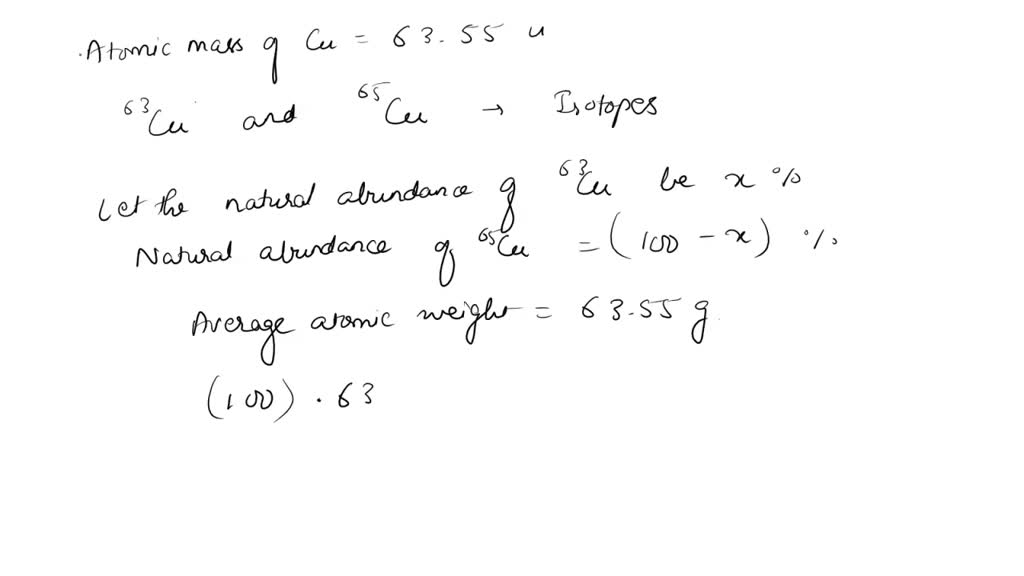 .Atomic mass of Cu = 63.55 u
⁶³Cu and ⁶⁵Cu → Isotopes
Let the natural abundance of ⁶³Cu be x %
Natural abundance of ⁶⁵Cu = (100 - x) %
Average atomic weight = 63.55 g
(100) . 63